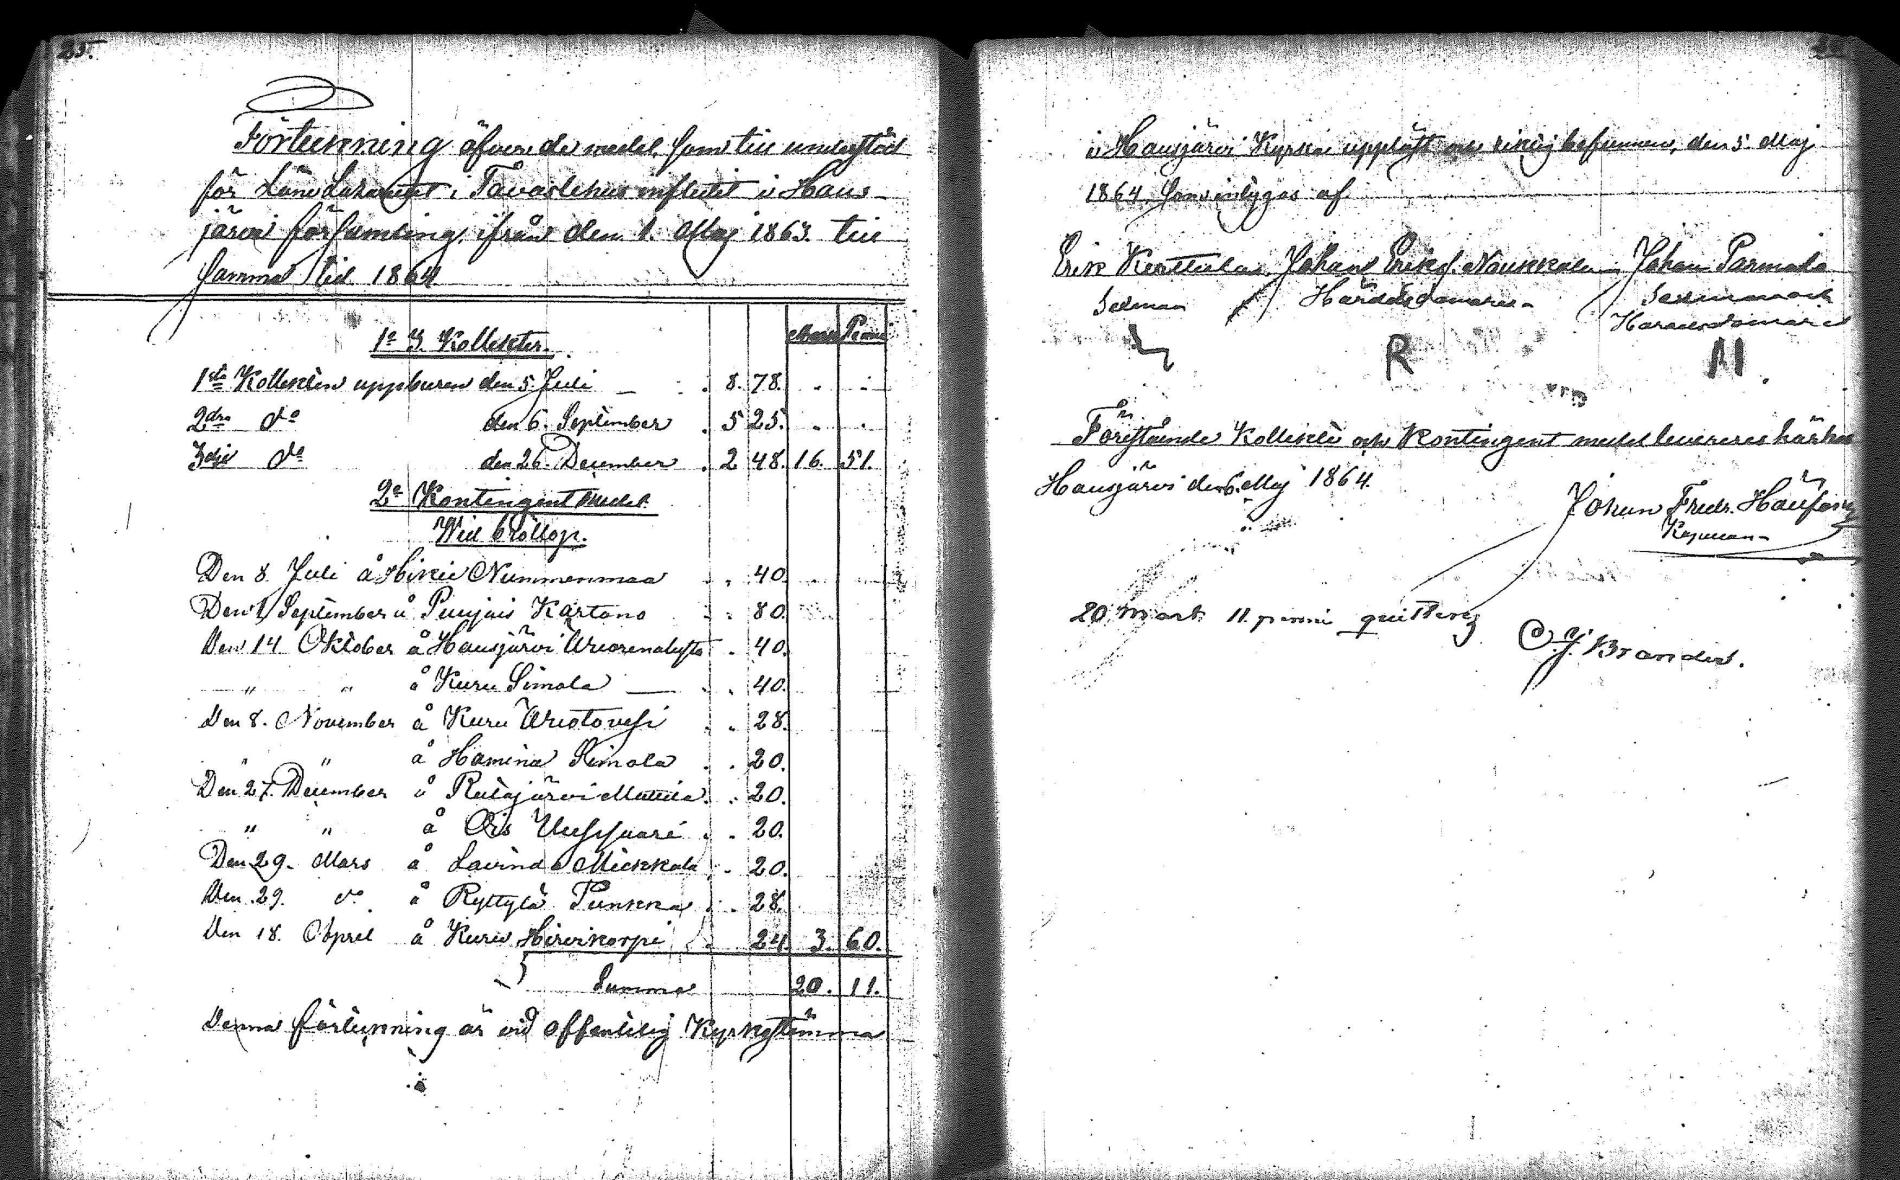 25.
Förteckning öfver de medel, som till understöd
för Läns Lazarettet i Tavastehus influtit i Haus-
järvi församling, ifrån den 1. Maj 1863 till
samma tid 1864.
Mark Penni
1o 3. Kollekter.
1sta Kollekten uppburen den 5 Juli — . 8. 78. . .
2dra do den 6. September . 5 25. . .
3dje do den 26. December . 2 48. 16. 51.
2o Kontingent medel
Wid bröllop.
Den 8. Juli å Hikiä Nummenmaa . . 40.
Den 1 September å Puujais Kartano . . 80.
Den 14 Oktober å Hausjärvi . 40.
" " å Kuru Simola — . . 40.
Den 8. November å Kuru . . 28.
" " å Hamina Simola . . 20.
Den 27. December å Rutajärvi Mattila . . 20.
" " å Ois Uusssaari . . 20.
Den 29. Mars å Lavinda Mickkola . . 20.
Den 29. do å Ryttylä Punkka . . 28.
Den 18. April å Kuru Hirvikorpi . 24. 3. 60.
Summa 20. 11.
Denna förteckning är vid offentlig Kyrkostämma
i Hausjärvi Kyrka uppläst och riktig befunnen, den 5. Maj
1864, som intygas af.
Erik Kerttula Johan Eriks. Naukkala Johan Parmala
Sexman Häradsdomare Sexman och
Häradsdomare
R M
Förestående Kollekt och Kontingent medel levereras härhos
Hausjärvi den 6. Maj 1864.
Johan Fredr.
Kapellan
20 mark 11. penni quitteras
C. J. Brander.